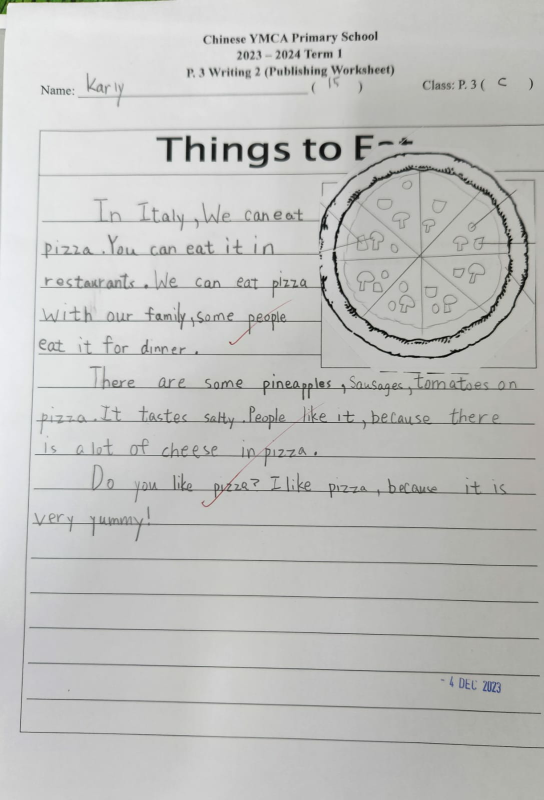 Chinese YMCA Primary School
2023 – 2024 Term 1
P. 3 Writing 2 (Publishing Worksheet)
Name: Karly ( 15 ) Class: P. 3 ( C )
Things to Eat
In Italy, We can eat
pizza. You can eat it in
restaurants. We can eat pizza
with our family, some people
eat it for dinner.
There are some pineapples, Sausages, tomatoes on
pizza. It tastes salty. People like it, because there
is a lot of cheese in pizza.
Do you like pizza? I like pizza, because it is
very yummy!
- 4 DEC 2023